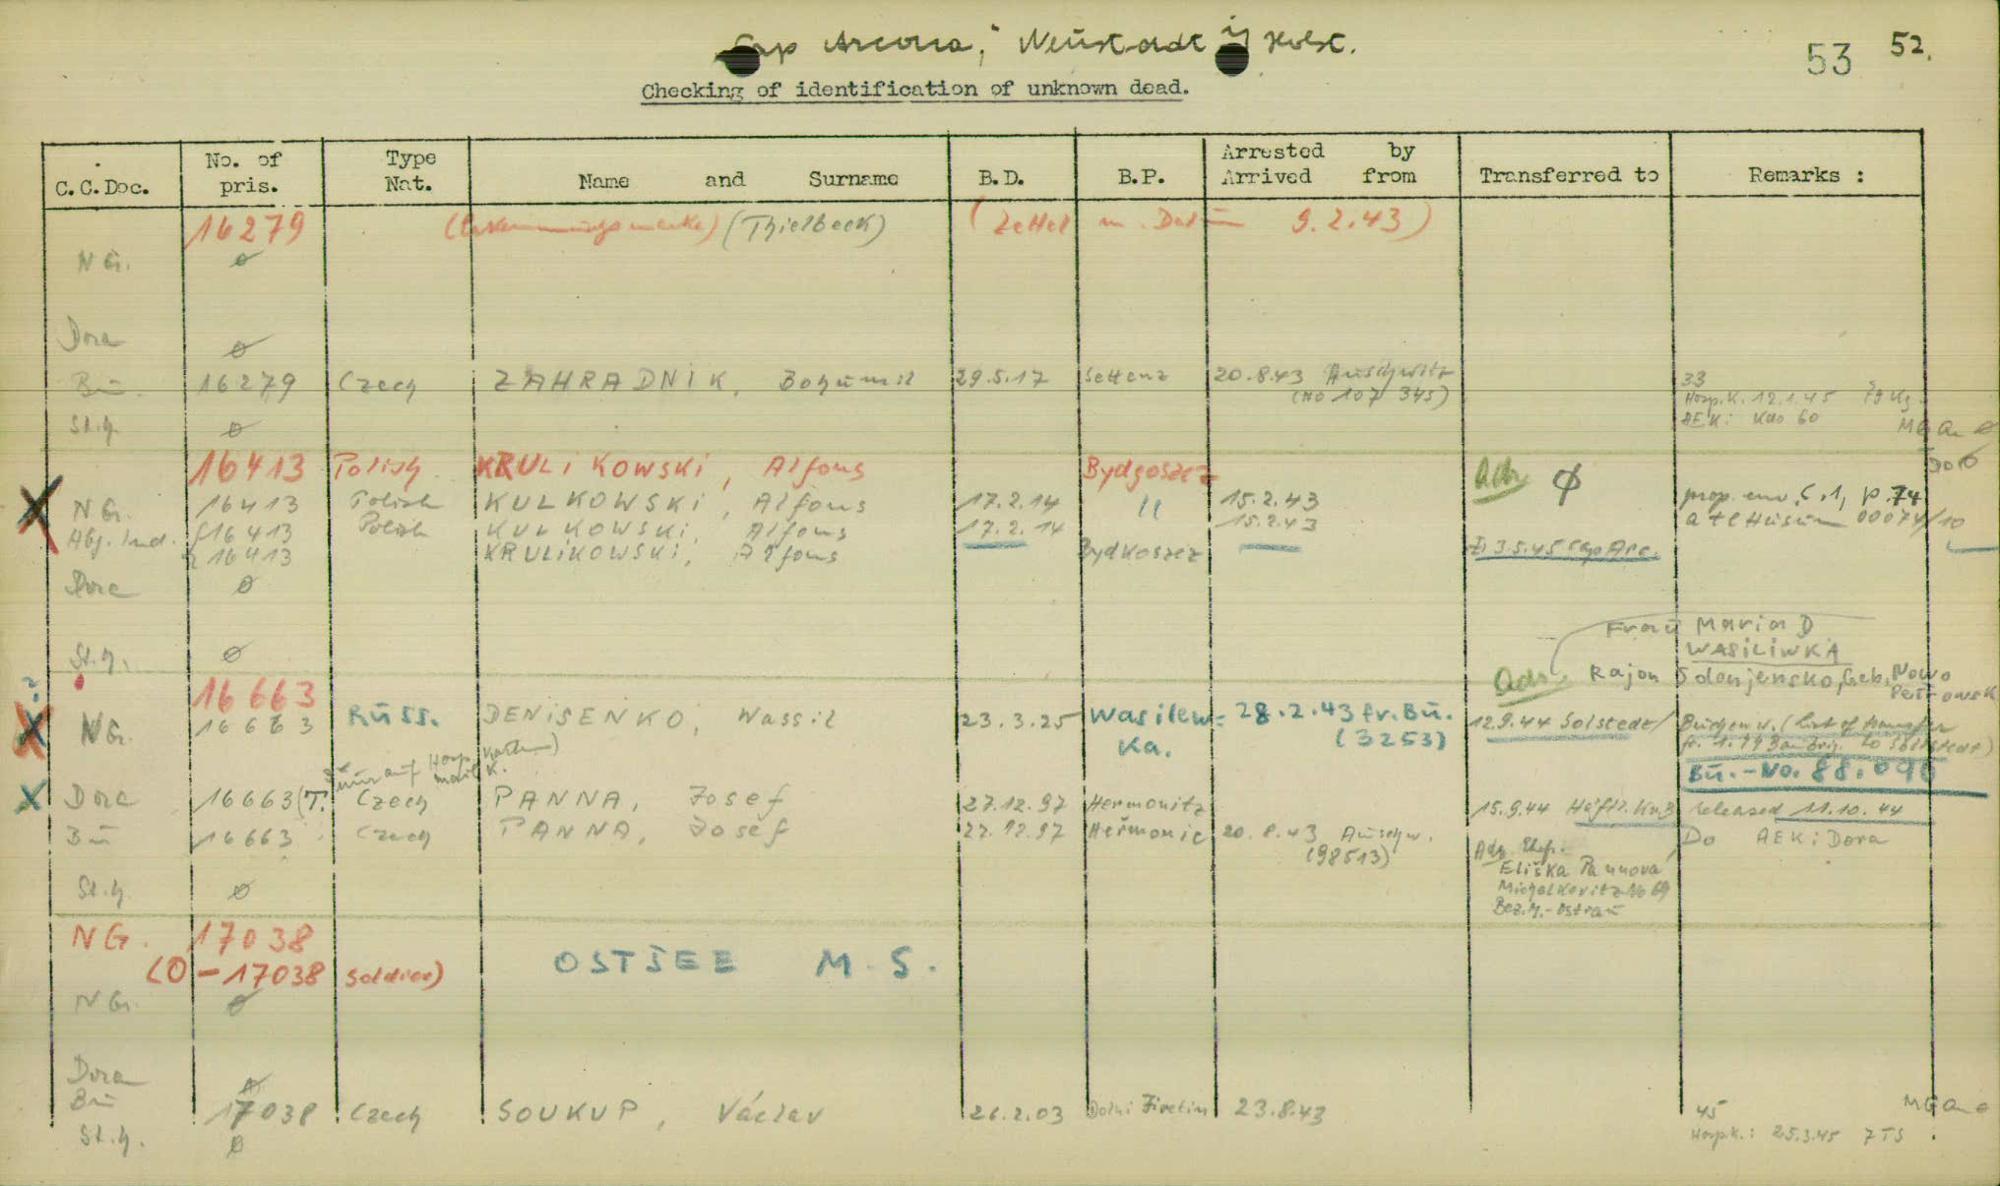 "Cap Arcona," Neustadt i/ Holst.
53 52.
Checking of identification of unknown dead.
C.C.Doc. No. of pris. Type Nat. Name and Surname B.D. B.P. Arrested by Arrived from Transferred to Remarks :
16279 (Erkennungsmarke) (Thielbeck) (Zettel m. Datum 9.2.43)
N G. ø
Dora ø
Bu. 16279 Czech ZAHRADNIK, Bohumil 29.5.17 Settenz 20.8.43 Auschwitz 33
(No 107 345) Hosp.K. 12.1.45
AEK: Kdo 60
St.H. ø
16413 Polish KRULIKOWSKI, Alfons Bydgoszcz Adr. ø
N G. 16413 Polish KULKOWSKI, Alfons 17.2.14 " 15.2.43 p. 74
Abg. Ind. 16413 Polish KULKOWSKI, Alfons 17.2.14 15.2.43 00074/10
16413 KRULIKOWSKI, Alfons Bydkoszcz 3.5.45 Cap Arc.
Dora ø
Frau Maria D
St.H. ø WASILIWKA
16 663 Adr. Rajon Geb. Nowo Petrowsk
N G. 16663 Russ. DENISENKO, Wassil 23.3.25 Wasilew=ka. 28.2.43 fr. Bu. (3253) 12.9.44 Solstedt/ Buchenw. (list of transfer
Bu.-No. 88.090
Dora 16663 (T. Czech PANNA, Josef 27.12.97 Hermonitz 15.9.44 released 11.10.44
Bu 16663 Czech PANNA, Josef 27.12.97 Heřmonic 20.8.43 Auschw. (98513) Do AEK: Dora
Adr. Ehefr.
Eliška Pannova
Michalkovitz No 69
Bez. M.-Ostrau
St.H. ø
NG. 17038
(O - 17038 soldier) OSTSEE M.S.
N G. ø
Dora ø
Bu 17038 Czech SOUKUP, Václav 26.2.03 Dolni 23.8.43 45
St.H. ø Hosp.K.: 25.3.45 7TS